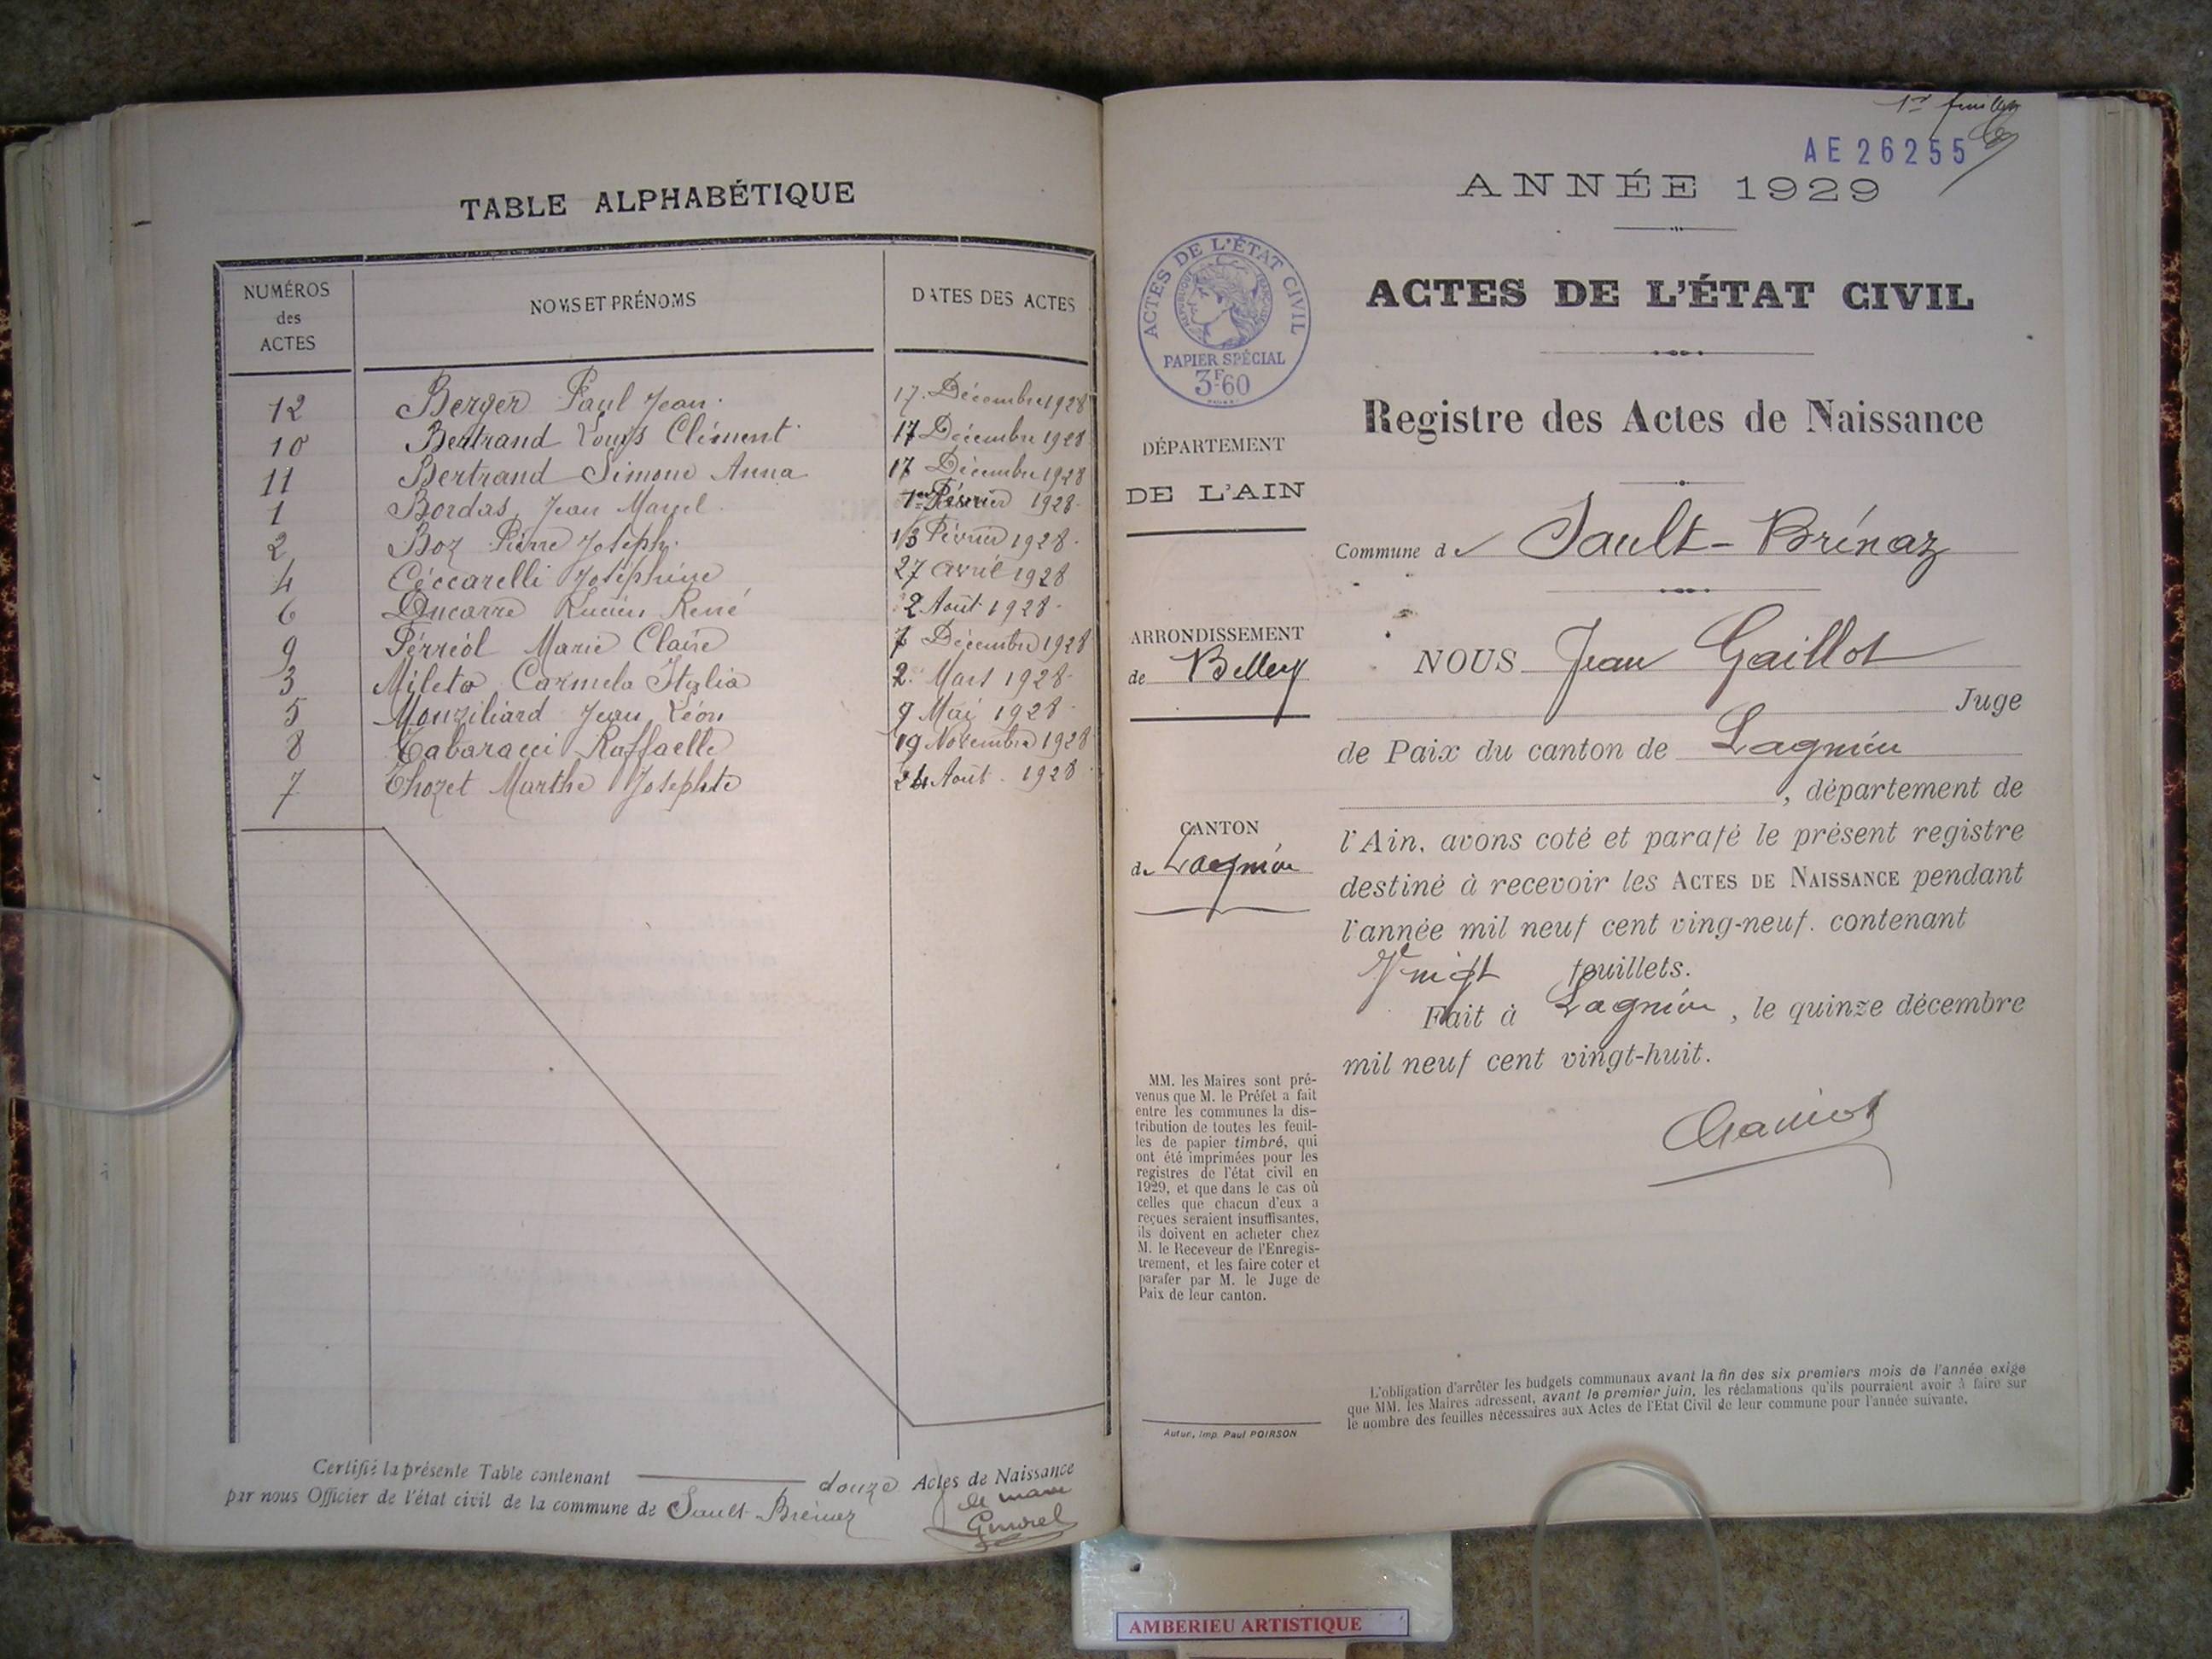 TABLE ALPHABÉTIQUE
NUMÉROS des ACTES NOMS ET PRÉNOMS DATES DES ACTES
12 Berger Paul Jean 17 Décembre 1928
10 Bertrand Louis Clément 17 Décembre 1928
11 Bertrand Simone Anna 17 Décembre 1928
1 Bordas Jean Marcel 1er Février 1928
2 Boz Pierre Joseph 13 Février 1928
4 Céccarelli Joséphine 27 avril 1928
6 Ducarre Lucien René 2 Août 1928
9 Férréol Marie Claire 7 Décembre 1928
3 Mileto Carmela Italia 2 Mars 1928
5 Monziliard Jean Léon 9 Mai 1928
8 Tabaracci Raffaelle 19 Novembre 1928
7 Thozet Marthe Josephte 24 Août 1928
Certifié la présente Table contenant douze Actes de Naissance
par nous Officier de l'état civil de la commune de Sault-Brénaz
le maire
1er feuillet
AE 26255
ANNÉE 1929
ACTES DE L'ÉTAT CIVIL
RÉPUBLIQUE FRANÇAISE
PAPIER SPÉCIAL
3F.60
ACTES DE L'ÉTAT CIVIL
Registre des Actes de Naissance
DÉPARTEMENT
DE L'AIN
Commune de Sault-Brénaz
ARRONDISSEMENT
de Belley
NOUS Jean Gaillot
Juge
de Paix du canton de Lagnieu
, département de
CANTON
de Lagnieu
l'Ain, avons coté et parafé le présent registre
destiné à recevoir les ACTES DE NAISSANCE pendant
l'année mil neuf cent ving-neuf. contenant
Vingt feuillets.
Fait à Lagnieu, le quinze décembre
mil neuf cent vingt-huit.
MM. les Maires sont pré-
venus que M. le Préfet a fait
entre les communes la dis-
tribution de toutes les feuil-
les de papier timbré, qui
ont été imprimées pour les
registres de l'état civil en
1929, et que dans le cas où
celles que chacun d'eux a
reçues seraient insuffisantes,
ils doivent en acheter chez
M. le Receveur de l'Enregis-
trement, et les faire coter et
parafer par M. le Juge de
Paix de leur canton.
Autun, Imp. Paul POIRSON
L'obligation d'arrêter les budgets communaux avant la fin des six premiers mois de l'année exige
que MM. les Maires adressent, avant le premier juin, les réclamations qu'ils pourraient avoir à faire sur
le nombre des feuilles nécessaires aux Actes de l'Etat Civil de leur commune pour l'année suivante.
AMBERIEU ARTISTIQUE